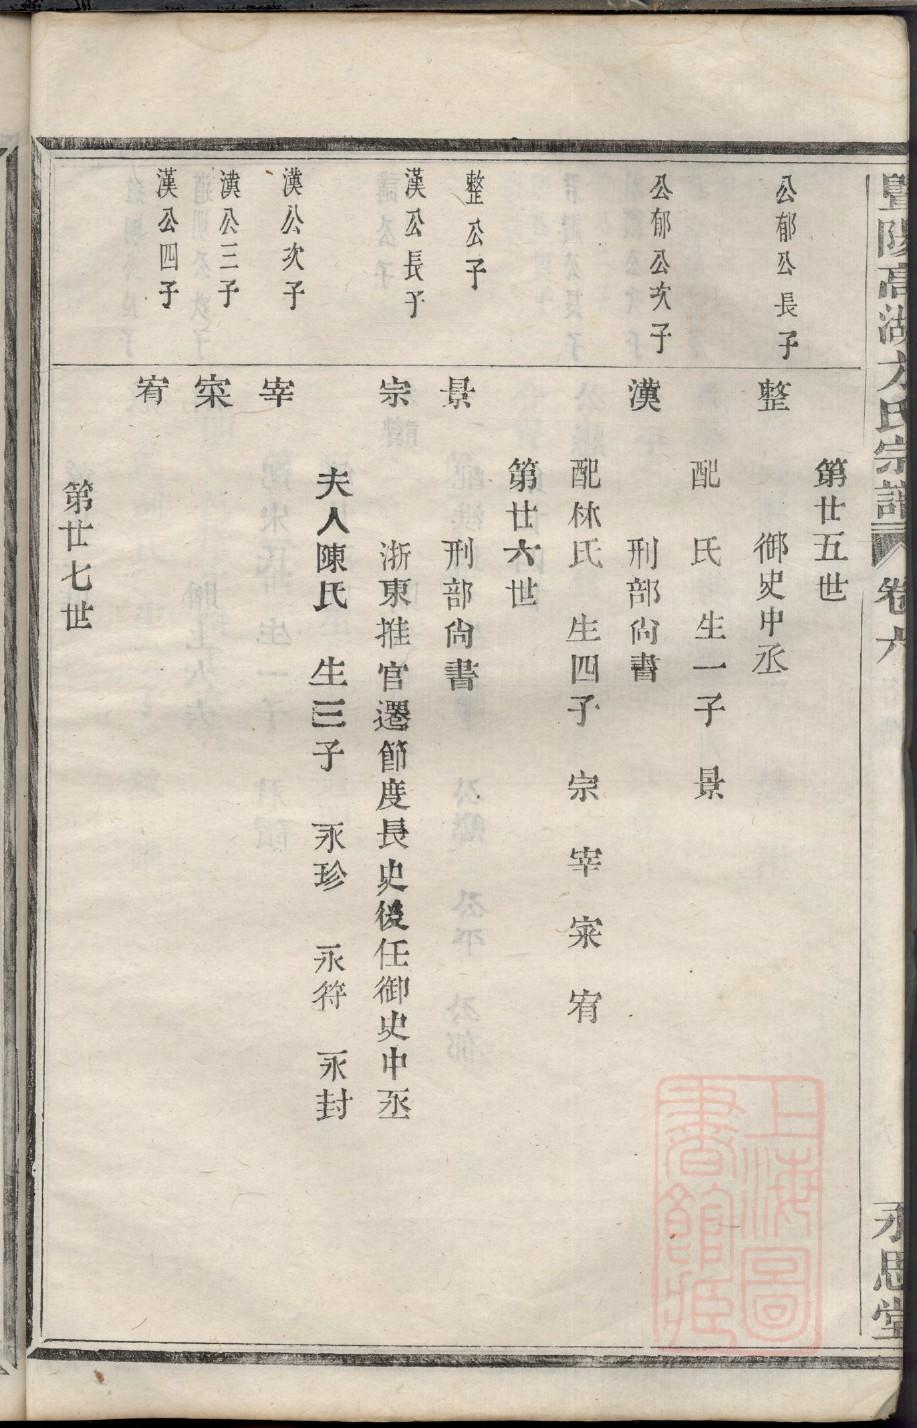 暨陽高湖方氏宗譜 卷六 永思堂
第廿五世
公郁公長子
整 御史中丞
配 氏 生一子 景
公郁公次子
漢 刑部尙書
配林氏 生四子 宗 宰 寀 宥
第廿六世
整公子
景 刑部尙書
漢公長子
宗 浙東推官遷節度長史後任御史中丞
夫人陳氏 生三子 永珍 永符 永封
漢公次子
宰
漢公三子
寀
漢公四子
宥
第廿七世
上海圖書館藏